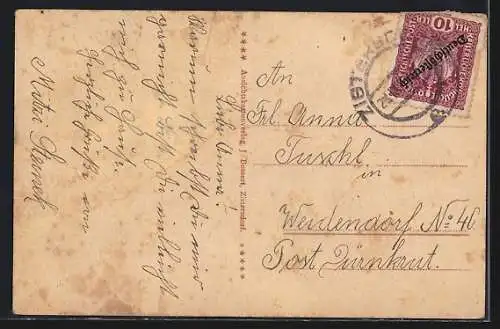 Liebe Anna!
Warum schreibst du mir
garnicht bist du vielleicht
noch zu Haus.
Herzliche Grüße von
Mitzi
***** Ansichtskartenverlag J. Bossert, Zistersdorf. *****
An
Frl. Anna
Tuschl.
in
Weidendorf No 46
Post Dürnkrut.
10
Deutschösterreich
ZISTERSDORF